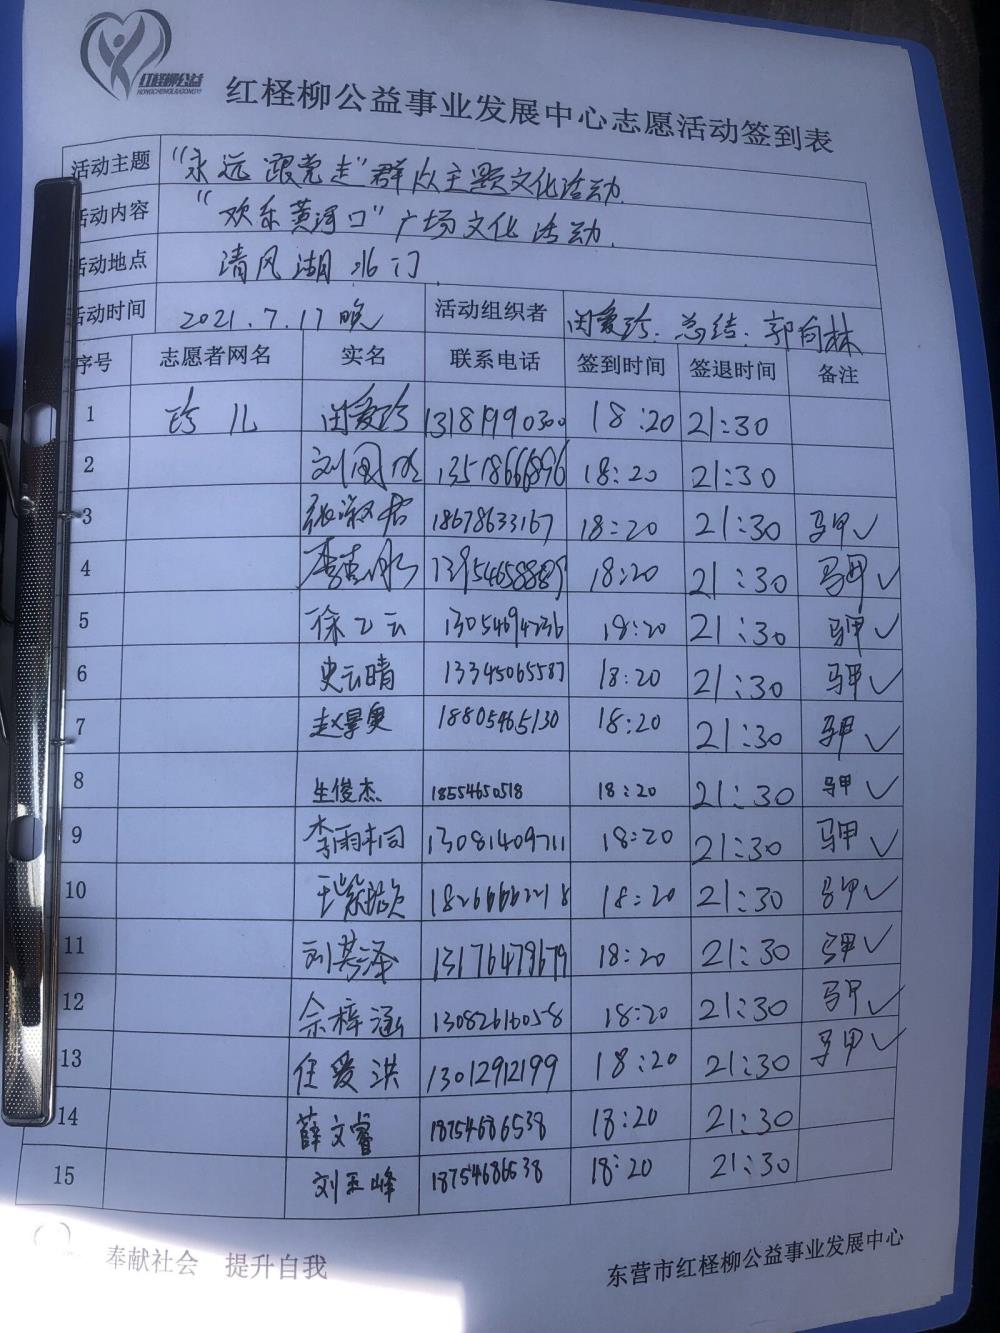 红柽柳公益
红柽柳公益事业发展中心志愿活动签到表
活动主题 “永远跟党走”群众主题文化活动.
活动内容 “欢乐黄河口”广场文化活动.
活动地点 清风湖北门
活动时间 2021.7.17晚 活动组织者 闵爱珍. 总结:郭向林
序号 志愿者网名 实名 联系电话 签到时间 签退时间 备注
1 珍儿 闵爱珍 13181990300 18:20 21:30
2 13518666896 18:20 21:30
3 张淑君 18678633167 18:20 21:30 马甲✓
4 18:20 21:30 马甲✓
5 徐乙云 13054694236 18:20 21:30 马甲✓
6 史云晴 13345065587 18:20 21:30 马甲✓
7 18805465130 18:20 21:30 马甲✓
8 生俊杰 18554650518 18:20 21:30 马甲✓
9 李雨桐 13081409711 18:20 21:30 马甲✓
10 王紫歆 18266662218 18:20 21:30 马甲✓
11 刘芸泽 13176479679 18:20 21:30 马甲✓
12 余梓涵 13082616058 18:20 21:30 马甲✓
13 任爱洪 13012912199 18:20 21:30 马甲✓
14 薛文睿 18754686538 18:20 21:30
15 刘玉峰 18754686538 18:20 21:30
奉献社会 提升自我
东营市红柽柳公益事业发展中心